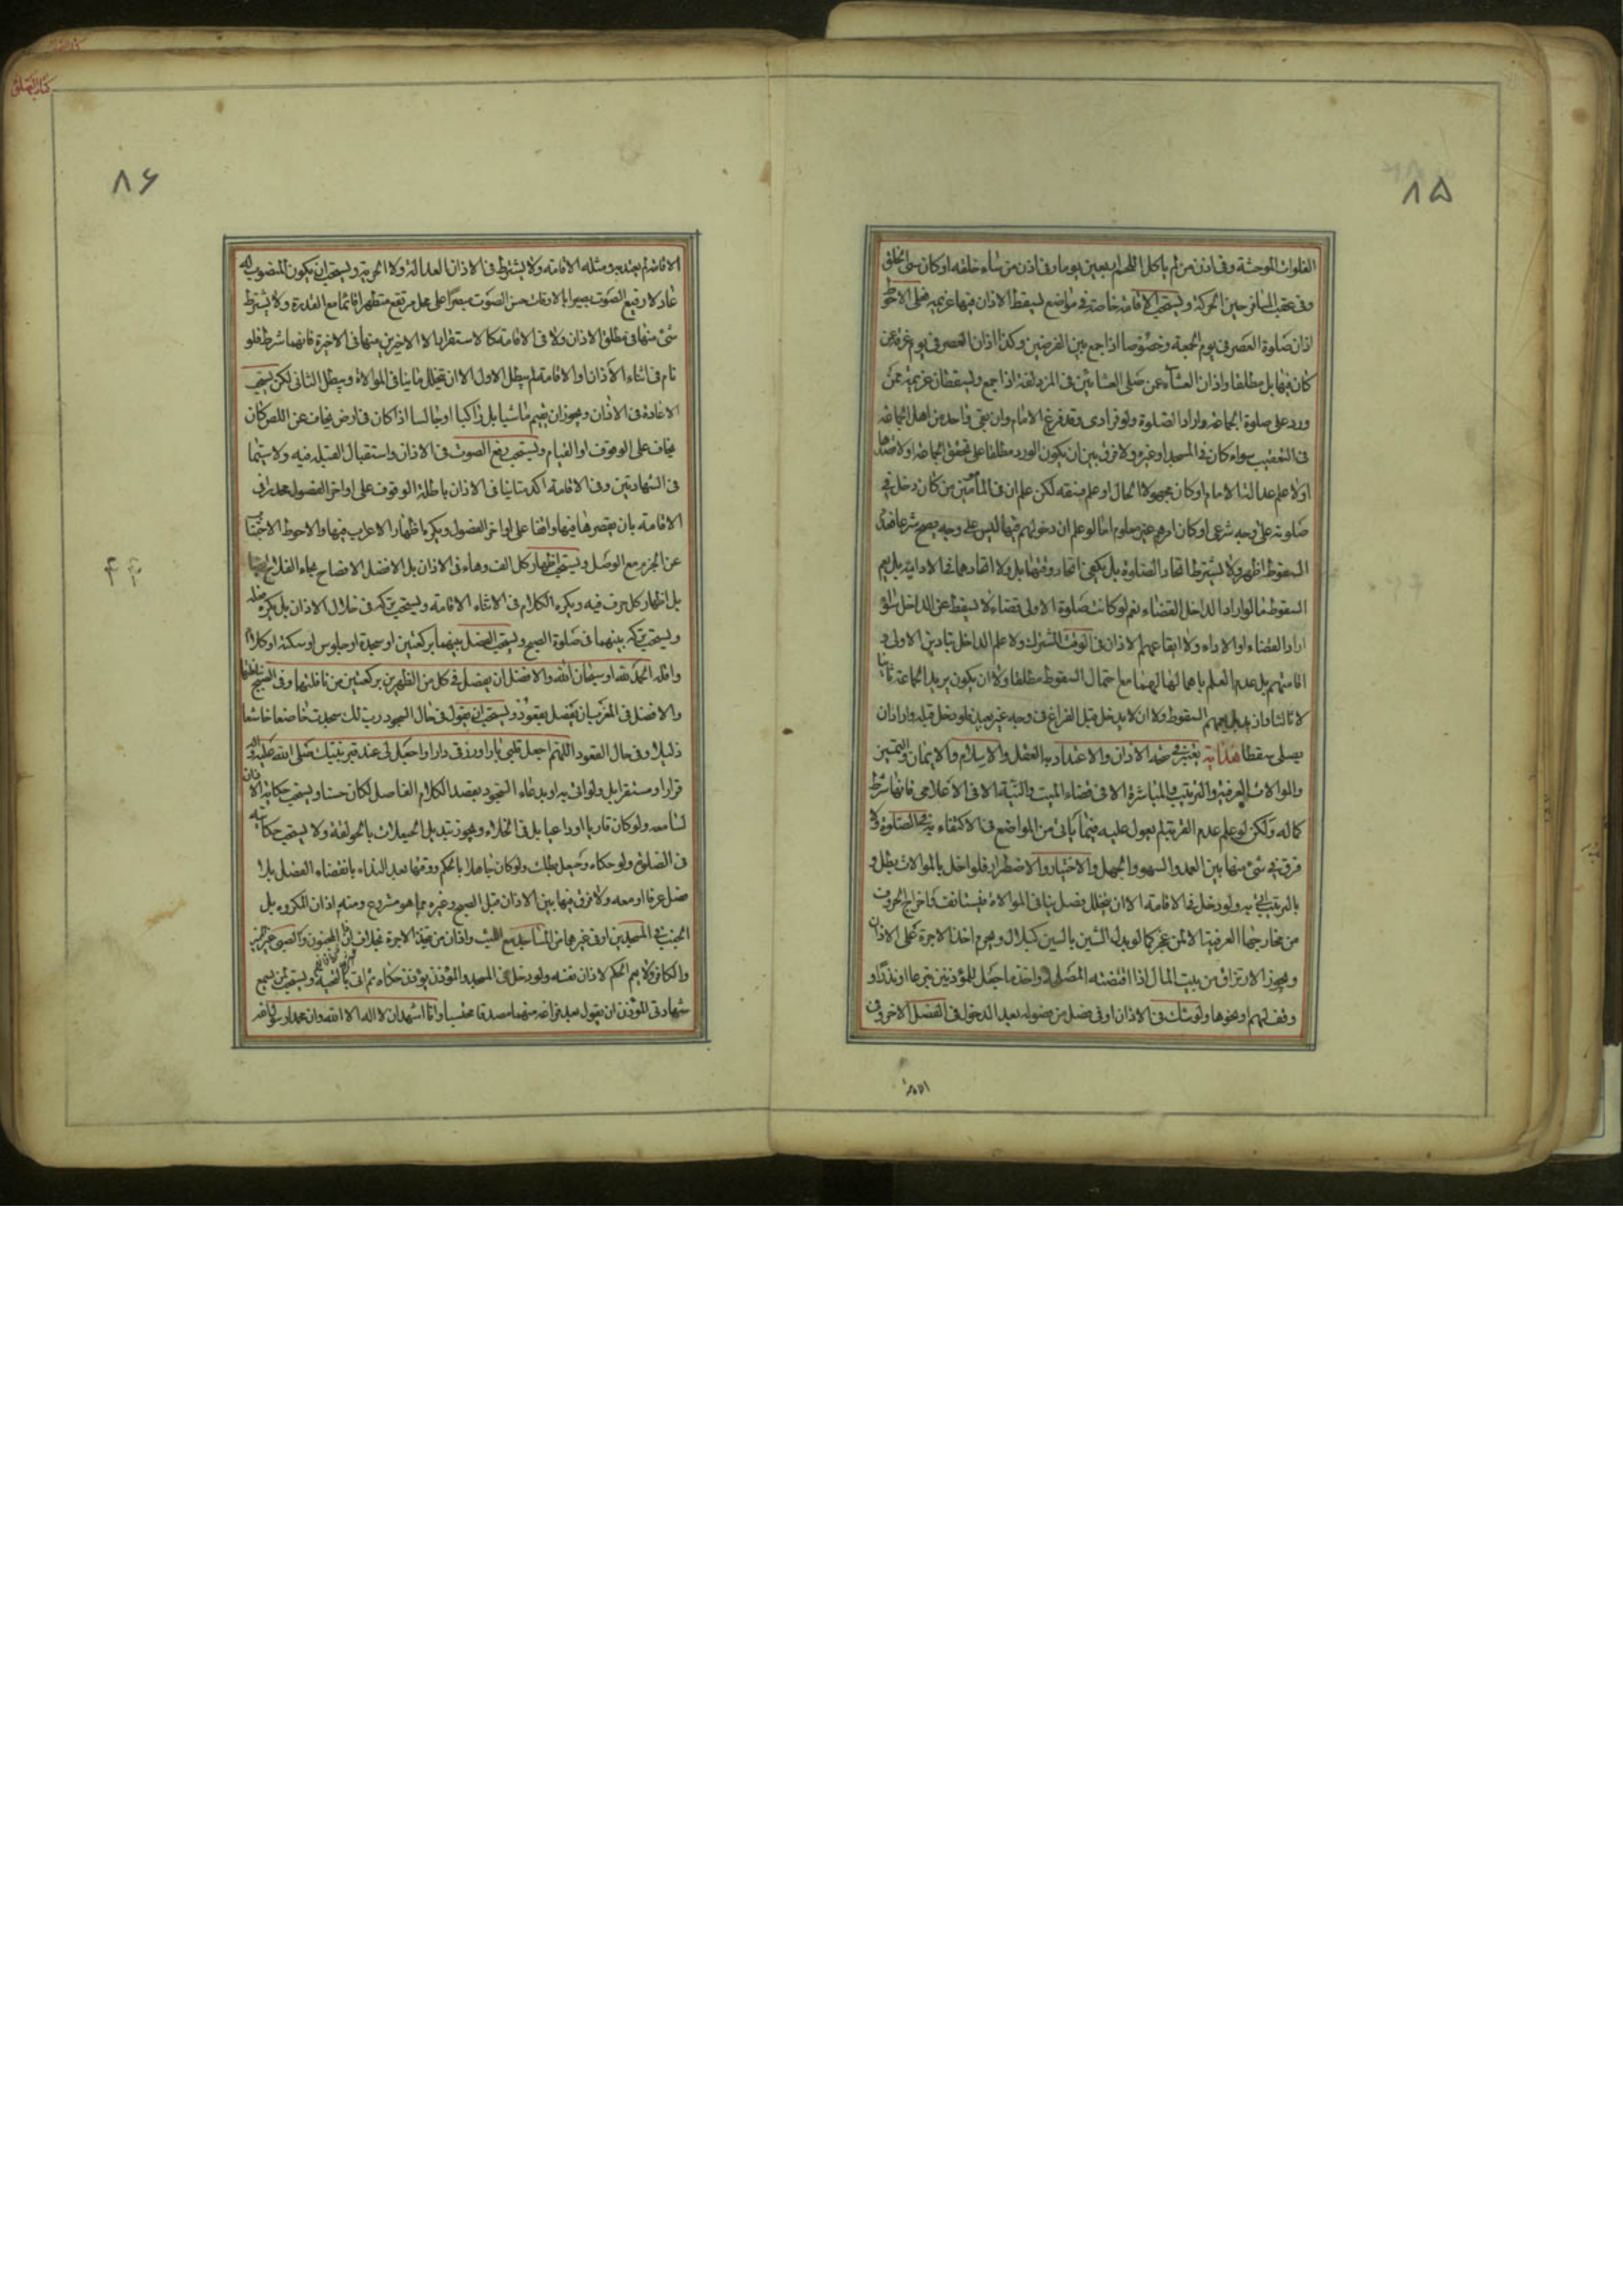 ٨۵
الفلوات الموحشة وفي اذن من لم ياكل اللحم اربعين يوما وفي اذن من ساء خلقه او كان سيئ الخلق
وفي عقب المسافر حين الحركة ويستحب الاقامة خاصة في مواضع يسقط الاذان فيها عزيمة على الاحوط
اذان صلوة العصر في يوم الجمعة وخصوصا اذا جمع بين الفرضين وكذا اذان العصر في يوم عرفة عن
كان فيها بل مطلقا واذان العشاء عن صلى العشائين في المزدلفة اذا جمع ويسقطان عزيمة عمن
ورد على صلوة الجماعة واراد الصلوة ولو فرادى وقد فرغ الامام وان بقى واحد من اهل الجماعة
في التعقيب سواء كان في المسجد او غيره ولا فرق بين ان يكون الورد مطلقا على تحقق الجماعة اولا
اولا علم عدالة الامام او كان مجهولا الحال او علم فسقه لكن علم ان في المأمين من كان دخل في
صلوته على وجه شرعى او كان امرهم غير معلوم اما لو علم ان دخولهم فيها ليس على وجه يصح شرعا فعدم
السقوط اظهر ولا يشترط اتحاد الصلوة بل يكفى اتحاد وقتها بل ولا اتحادهما في الادائية بل يعم
السقوط ما لو اراد الداخل القضاء نعم لو كانت صلوة الاولى قضاء لا يسقط عن الداخل سواء
اراد القضاء او الاداء ولا ايقاعهم الاذان في الوقت المشترك ولا علم الداخل بتادين الاولى و
اقامتهم بل عدم العلم باهمالهما ليهما مع احتمال السقوط مطلقا ولا ان يكون يريد الجماعة ثانيا
لا ثالثا وان السقوط ولا ان لا يدخل قبل الفراغ في وجه غير بعيد فلو دخل قبله واراد ان
يصلى سقطا هداية يعتبر في صحة الاذان والاعتداد به العقل والاسلام والايمان والتميز
والموالات العرفية والترتيب والمباشرة الا في قضاء الميت والنية الا في الاعلامى فانها شرط
كماله ولكن لو علم عدم القربة لم يعول عليه فيما ياتى من المواضع في الاكتفاء به في الصلوة ولا
فرق في شئ منها بين العمد والسهو والجهل والاختيار والاضطرار فلو اخل بالموالات بطل و
بالترتيب اتى به ولو دخل في الاقامة الا ان يتخلل فصل ينافى الموالاة فيستانف كاخراج الحروف
من مخارجها العرفية الا لمن عجز كما لو بدل الشين بالسين كبلال ويحرم اخذ الاجرة على الاذان
ويجوز الارتزاق من بيت المال اذا اقتضته المصلحة واخذ ما جعل للمؤذنين تبرعا او نذرا او
وقف لهم او نحوها ولو شك في الاذان او في فصل من فصوله بعد الدخول في الفصل الاخر وفى
الاقامة
كتاب الصلوة
٨۶
الاقامة لم يعتد به ومثله الاقامة ولا يشترط في الاذان العدالة ولا الحرية ويستحب ان يكون المنصوب له
عادلا رفيع الصوت بصيرا بالاوقات حسن الصوت مبصرا على محل مرتفع متطهرا قائما مع القدرة ولا يشترط
شئ منها في مطلق الاذان ولا في الاقامة كالاستقرار الا الاخيرين منها في الاخيرة فانهما شرط فلو
نام في اثناء الاذان او الاقامة لم يبطل الاول الا ان تخلل ما ينافى الموالاة ويبطل الثانى لكن يستحب
الاعادة في الاذان ويجوز ان يقيم ماشيا بل راكبا او جالسا اذا كان في ارض يخاف عن اللص كان
يخاف على الوقوف او القيام ويستحب رفع الصوت في الاذان واستقبال القبلة فيه ولا سيما
في الشهادتين وفي الاقامة اكد متانيا في الاذان باطالة الوقوف على اواخر الفصول محدرا في
الاقامة بان يقصرها فيها واقفا على اواخر الفصول ويكره اظهار الاعراب فيها والاحوط الاجتناب
عن الجزم مع الوصل ويستحب اظهار كل الف وهاء في الاذان بل الافضل الافصاح بحاء الفلاح
بل اظهار كل حرف فيه ويكره الكلام في الاثناء الاقامة ويستحب تركه في خلال الاذان بل يكره فعله
ويستحب تركه بينهما في صلوة الصبح ويستحب الفصل بينهما بركعتين او سجدة او جلوس او سكتة او كلام
واقله الحمد لله او سبحان الله والافضل ان يفصل في كل من الظهرين بركعتين من نافلتها وفى الصبح
والافضل في المغرب ان يفصل بقعود ويستحب ان يقول في حال السجود رب لك سجدت خاضعا خاشعا
ذليلا وفى حال القعود اللهم اجعل قلبى بارا ورزقى دارا واجعل لى عند قبر نبيك صلى الله عليه واله
قرارا ومستقرا بل ولو اتى به او بدعاء السجود بقصد الكلام الفاصل لكان حسنا ويستحب حكاية الاذان
لسامعه ولو كان قاريا او داعيا بل في الخلاء ويجوز تبديل الحيعلات بالحولقة ولا يستحب حكايته
في الصلوة ولو حكاه وحيعل بطلت ولو كان جاهلا بالحكم ووقتها بعد النداء بانقضاء الفصل بلا
فصل عرفا او معه ولا فرق فيها بين الاذان قبل الصبح وغيره مما هو مشروع ومنه اذان المكروه بل
الجنب في المسجدين او في غيرهما من المساجد مع اللبث واذان من تحيذ الاجرة بخلاف اذان المجنون والصبى غير المميز
والكافر ولا يعم الحكم لاذان نفسه ولو دخل في المسجد والمؤذن يؤذن حكاه ثم اتى بالتحية ويستحب لمن يسمع
شهادتى المؤذن ان يقول بعد فراغه منهما مصدقا محتسبا وانا اشهد ان لا اله الا الله وان محمدا رسول الله